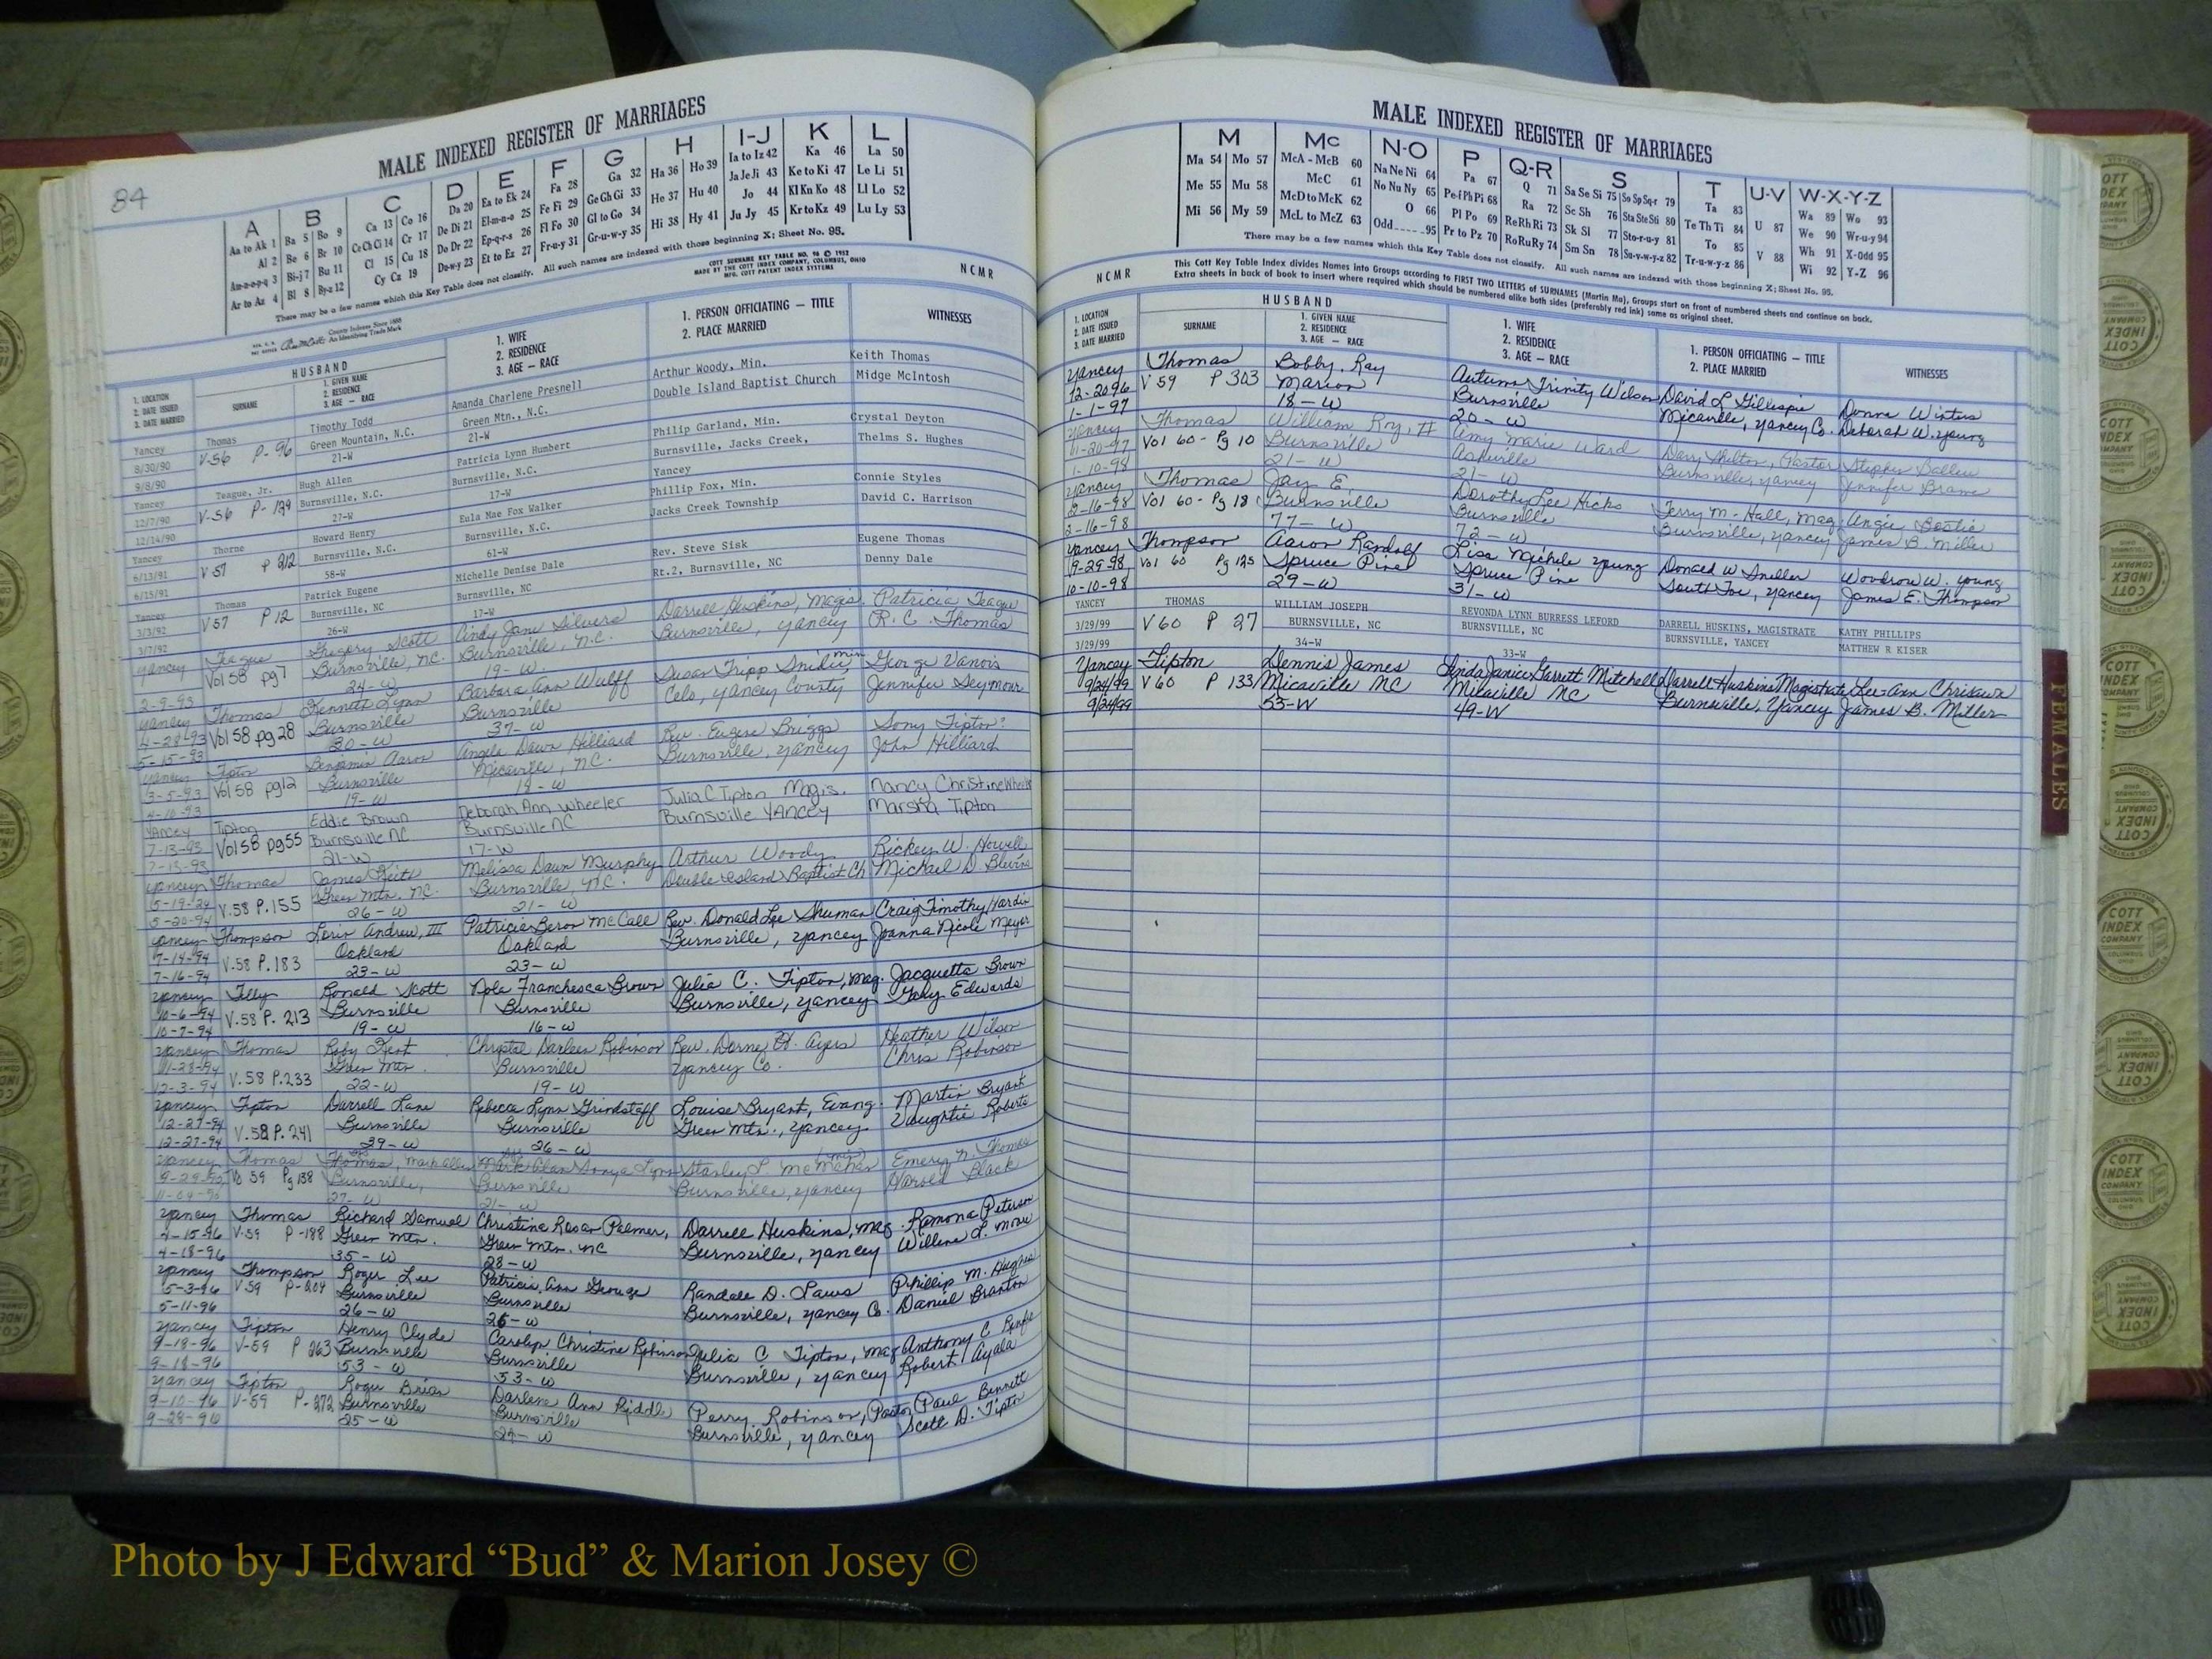 84
MALE INDEXED REGISTER OF MARRIAGES
A B C D E F G H I-J K L
Aa to Ak 1 Ba 5 Bo 9 Ca 13 Co 16 Da 20 Ea to Ek 24 Fa 28 Ga 32 Ha 36 Ho 39 Ia to Iz 42 Ka 46 La 50
Al 2 Be 6 Br 10 Ce Ch Ci 14 Cr 17 De Di 21 El-m-n-o 25 Fe Fi 29 Ge Gh Gi 33 He 37 Hu 40 Ja Je Ji 43 Ke to Ki 47 Le Li 51
Am-n-o-p-q 3 Bi-j 7 Bu 11 Cl 15 Cu 18 Do Dr 22 Ep-q-r-s 26 Fl Fo 30 Gl to Go 34 Hi 38 Hy 41 Jo 44 Kl Kn Ko 48 Ll Lo 52
Ar to Az 4 Bl 8 By-z 12 Cy Cz 19 Du-w-y 23 Et to Ez 27 Fr-u-y 31 Gr-u-w-y 35 Ju Jy 45 Kr to Kz 49 Lu Ly 53
There may be a few names which this Key Table does not classify. All such names are indexed with those beginning X; Sheet No. 95.
COTT SURNAME KEY TABLE NO. 96 © 1952
MADE BY THE COTT INDEX COMPANY, COLUMBUS, OHIO
MFG. COTT PATENT INDEX SYSTEMS
NCMR
County Indexes Since 1888
An Identifying Trade Mark
HUSBAND
1. LOCATION
2. DATE ISSUED
3. DATE MARRIED
SURNAME
1. GIVEN NAME
2. RESIDENCE
3. AGE — RACE
1. WIFE
2. RESIDENCE
3. AGE — RACE
1. PERSON OFFICIATING — TITLE
2. PLACE MARRIED
WITNESSES
Yancey Thomas Timothy Todd Amanda Charlene Presnell Arthur Woody, Min. Keith Thomas
8/30/90 V-56 P-96 Green Mountain, N.C. Green Mtn., N.C. Double Island Baptist Church Midge McIntosh
9/8/90 21-W 21-W
Yancey Teague, Jr. Hugh Allen Patricia Lynn Humbert Philip Garland, Min. Crystal Deyton
12/7/90 V-56 P-129 Burnsville, N.C. Burnsville, N.C. Burnsville, Jacks Creek, Thelms S. Hughes
12/14/90 27-W 17-W Yancey
Yancey Thorne Howard Henry Eula Mae Fox Walker Phillip Fox, Min. Connie Styles
6/13/91 V 57 P 212 Burnsville, N.C. Burnsville, N.C. Jacks Creek Township David C. Harrison
6/15/91 58-W 61-W
Yancey Thomas Patrick Eugene Michelle Denise Dale Rev. Steve Sisk Eugene Thomas
3/3/92 V 57 P 12 Burnsville, NC Burnsville, NC Rt.2, Burnsville, NC Denny Dale
3/7/92 26-W 17-W
Yancey Teague Gregory Scott Cindy Jane Silvers Darrell Huskins, Magis. Patricia Teague
Vol 58 pg 7 Burnsville, N.C. Burnsville, N.C. Burnsville, Yancey R. C. Thomas
2-9-93 24-W 19-W
Yancey Thomas Kennett Lynn Barbara Ann Wulff Susan Tripp Snider min George Vanois
4-28-93 Vol 58 pg 28 Burnsville Burnsville Celo, Yancey County Jennifer Seymour
5-15-93 30-W 37-W
Yancey Tipton Benjamin Aaron Angela Dawn Hilliard Rev. Eugene Briggs Sony Tipton?
3-5-93 Vol 58 pg 12 Burnsville Micaville, N.C. Burnsville, Yancey John Hilliard
4-10-93 19-W 19-W
Yancey Tipton Eddie Brown Deborah Ann Wheeler Julia C Tipton Magis. Nancy Christine Wheeler
7-13-93 Vol 58 pg 55 Burnsville NC Burnsville NC Burnsville Yancey Marsha Tipton
7-13-93 21-W 17-W
Yancey Thomas James Keith Melissa Dawn Murphy Arthur Woody Rickey W. Howell
5-19-94 V.58 P.155 Green Mtn. NC. Burnsville, N.C. Double Island Baptist Ch Michael D. Blevins
5-20-94 26-W 21-W
Yancey Thompson Lorin Andrew, III Patricia Beron McCall Rev. Donald Lee Shuman Craig Timothy Hardin
7-14-94 V.58 P.183 Oakland Oakland Burnsville, Yancey Joanna Nicole Meyer
7-16-94 23-W 23-W
Yancey Tilly Ronald Scott Nola Franchesca Brown Julia C. Tipton, Mag. Jacquetta Brown
10-6-94 V.58 P.213 Burnsville Burnsville Burnsville, Yancey Gary Edwards
10-7-94 19-W 16-W
Yancey Thomas Roby Kent Chrystal Darleen Robinson Rev. Dorne H. Ayers Heather Wilson
11-28-94 V.58 P.233 Green Mtn. Burnsville Yancey Co. Chris Robinson
12-3-94 22-W 19-W
Yancey Tipton Darrell Lane Rebecca Lynn Grindstaff Louise Bryant, Evang. Martin Bryant
12-27-94 V.58 P.241 Burnsville Burnsville Green Mtn., Yancey Vaughtie Roberts
12-27-94 29-W 26-W
Yancey Thomas Thomas, Mark Allen Sonya Lynn Stanley L. McMahan (min) Emery N. Thomas
Vo 59 Pg 138 Burnsville, Burnsville Burnsville, Yancey Harold Black
27-W 21-W
Yancey Thomas Richard Samuel Christina Rosan Palmer, Darrell Huskins, Mag. Ramona Peterson
4-15-96 V-59 P-188 Green Mtn. Green Mtn. NC Burnsville, Yancey Willene L. Moore
4-18-96 35-W 28-W
Yancey Thompson Roger Lee Patricia Ann George Randall D. Laws Phillip M. Hughes
5-3-96 V 59 P-204 Burnsville Burnsville Burnsville, Yancey Co. Daniel Branton
5-11-96 26-W 26-W
Yancey Tipton Henry Clyde Carolyn Christine Robinson Julia C Tipton, Mag Anthony C
9-18-96 V-59 P 263 Burnsville Burnsville Burnsville, Yancey Robert Ayala
9-18-96 53-W 53-W
Yancey Tipton Roger Brian Darlene Ann Riddle Perry Robinson, Pastor Paul Bennett
9-10-96 V-59 P-272 Burnsville Burnsville Burnsville, Yancey Scott D. Tipton
9-28-96 25-W 24-W
MALE INDEXED REGISTER OF MARRIAGES
M Mc N-O P Q-R S T U-V W-X-Y-Z
Ma 54 Mo 57 McA - McB 60 Na Ne Ni 64 Pa 67 Q 71 Sa Se Si 75 So Sp Sq-r 79 Ta 83 U 87 Wa 89 Wo 93
Me 55 Mu 58 McC 61 No Nu Ny 65 Pe-i Ph Pi 68 Ra 72 Sc Sh 76 Sta Ste Sti 80 Te Th Ti 84 V 88 We 90 Wr-u-y 94
Mi 56 My 59 McD to McK 62 O 66 Pl Po 69 Re Rh Ri 73 Sk Sl 77 Sto-r-u-y 81 To 85 Wh 91 X-Odd 95
McL to McZ 63 Odd 95 Pr to Pz 70 Ro Ru Ry 74 Sm Sn 78 Su-v-w-y-z 82 Tr-u-w-y-z 86 Wi 92 Y-Z 96
There may be a few names which this Key Table does not classify. All such names are indexed with those beginning X; Sheet No. 95.
NCMR
This Cott Key Table Index divides Names into Groups according to FIRST TWO LETTERS of SURNAMES (Martin Ma), Groups start on front of numbered sheets and continue on back.
Extra sheets in back of book to insert where required which should be numbered alike both sides (preferably red ink) same as original sheet.
HUSBAND
1. LOCATION
2. DATE ISSUED
3. DATE MARRIED
SURNAME
1. GIVEN NAME
2. RESIDENCE
3. AGE — RACE
1. WIFE
2. RESIDENCE
3. AGE — RACE
1. PERSON OFFICIATING — TITLE
2. PLACE MARRIED
WITNESSES
Yancey Thomas Bobby Ray Autumn Trinity Wilson David L Gillespie Donna Winters
12-20-96 V 59 P 303 Marion Burnsville Micaville, Yancey Co. Deborah W. Young
1-1-97 18-W 20-W
Yancey Thomas William Roy, II Amy Marie Ward Dary Shelton, Pastor Stephen Ballew
11-20-97 Vol 60 - Pg 10 Burnsville Asheville Burnsville, Yancey Jennifer Brame
1-10-98 21-W 21-W
Yancey Thomas Jay E. Dorothy Lee Hicks Terry M. Hall, Mag. Angie Bostic
2-16-98 Vol 60 - Pg 18 Burnsville Burnsville Burnsville, Yancey James B. Miller
2-16-98 77-W 72-W
Yancey Thompson Aaron Randolf Lisa Michele Young Donald W Sneller Woodrow W. Young
9-29-98 Vol 60 Pg 125 Spruce Pine Spruce Pine South Toe, Yancey James E. Thompson
10-10-98 29-W 31-W
YANCEY THOMAS WILLIAM JOSEPH REVONDA LYNN BURRESS LEFORD DARRELL HUSKINS, MAGISTRATE KATHY PHILLIPS
3/29/99 V 60 P 27 BURNSVILLE, NC BURNSVILLE, NC BURNSVILLE, YANCEY MATTHEW R KISER
3/29/99 34-W 33-W
Yancey Tipton Dennis James Linda Janice Garrett Mitchell Darrell Huskins Magistrate Lee-Ann Chrisawn
9/24/99 V 60 P 133 Micaville NC Micaville NC Burnsville, Yancey James B. Miller
9/24/99 53-W 49-W
FEMALES
COTT
INDEX
COMPANY
OHIO
Photo by J Edward “Bud” & Marion Josey ©